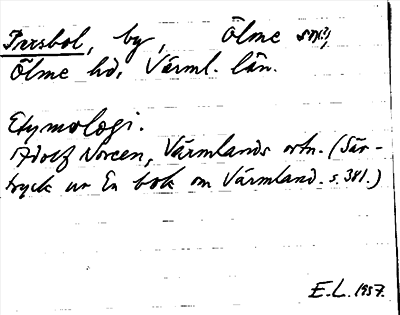 Irrsbol, by, Ölme sn,
Ölme hd, Värml. län.
Etymologi.
Adolf Noreen, Värmlands ortn. (Sär-
tryck ur En bok om Värmland. s. 381.)
E.L. 1957.